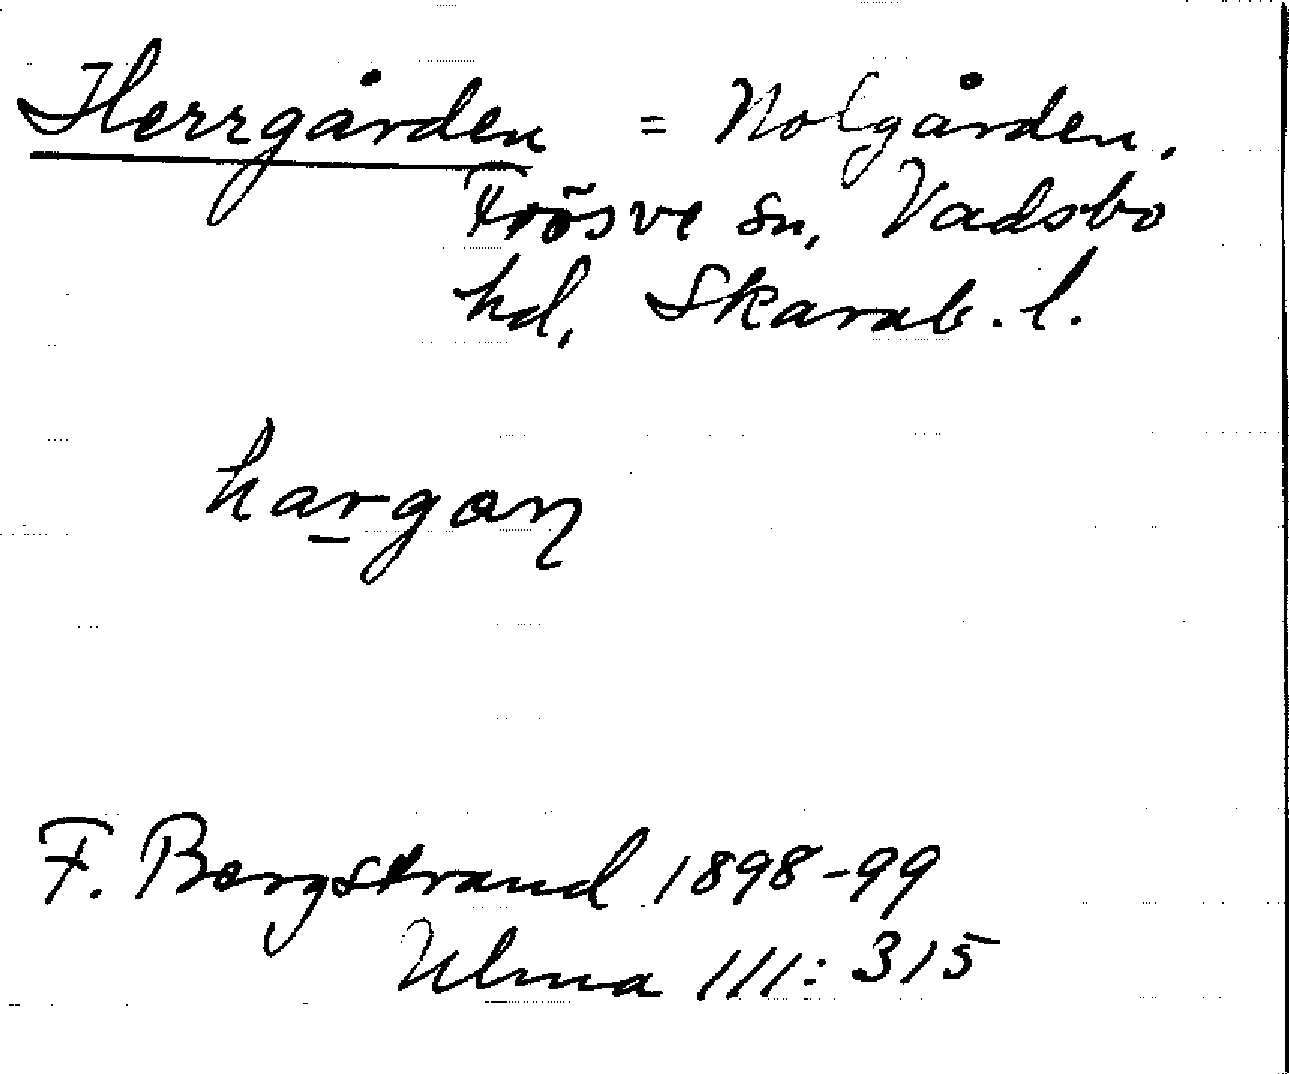 Herrgården = Nolgården,
Frösve sn, Vadsbo
hd, Skarab. l.
hargaꞃ
F. Bergstrand 1898-99
Ulma 111: 315